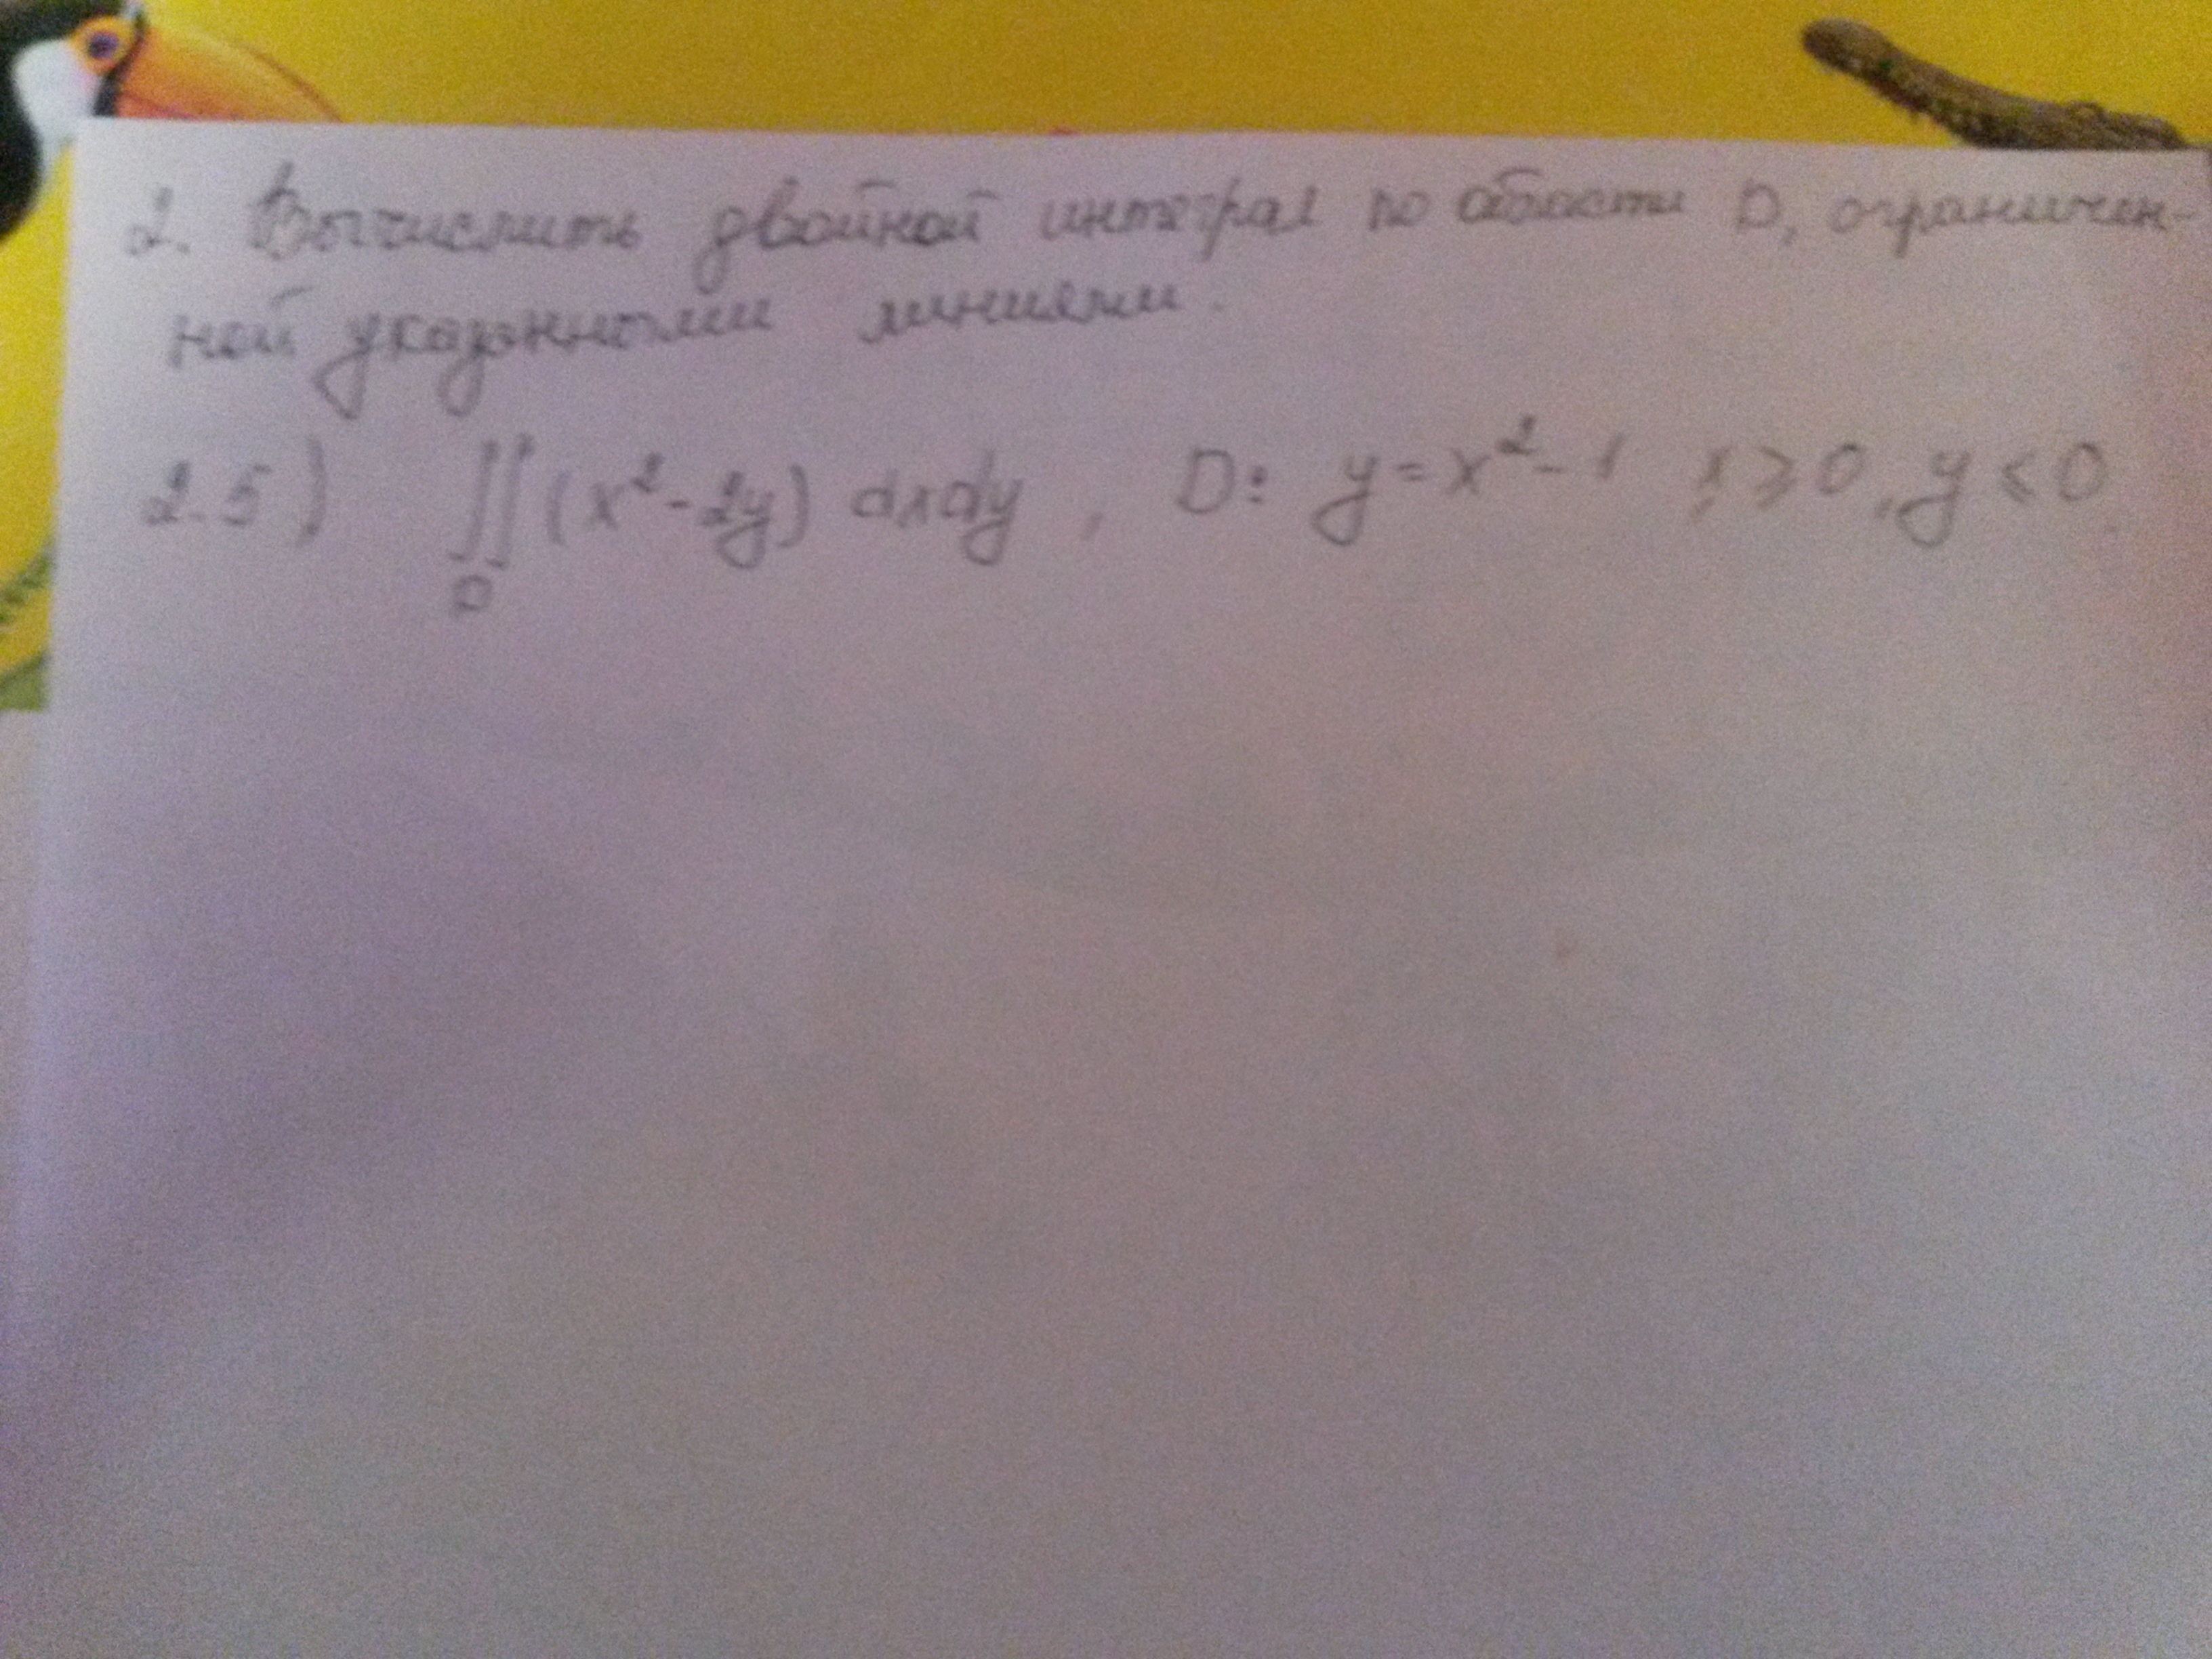 2. Вычислить двойной интеграл по области D, ограничен-
ной указанными линиями.
2.5) ∬(x²-2y) dxdy, D: y=x²-1, x⩾0, y⩽0.
D